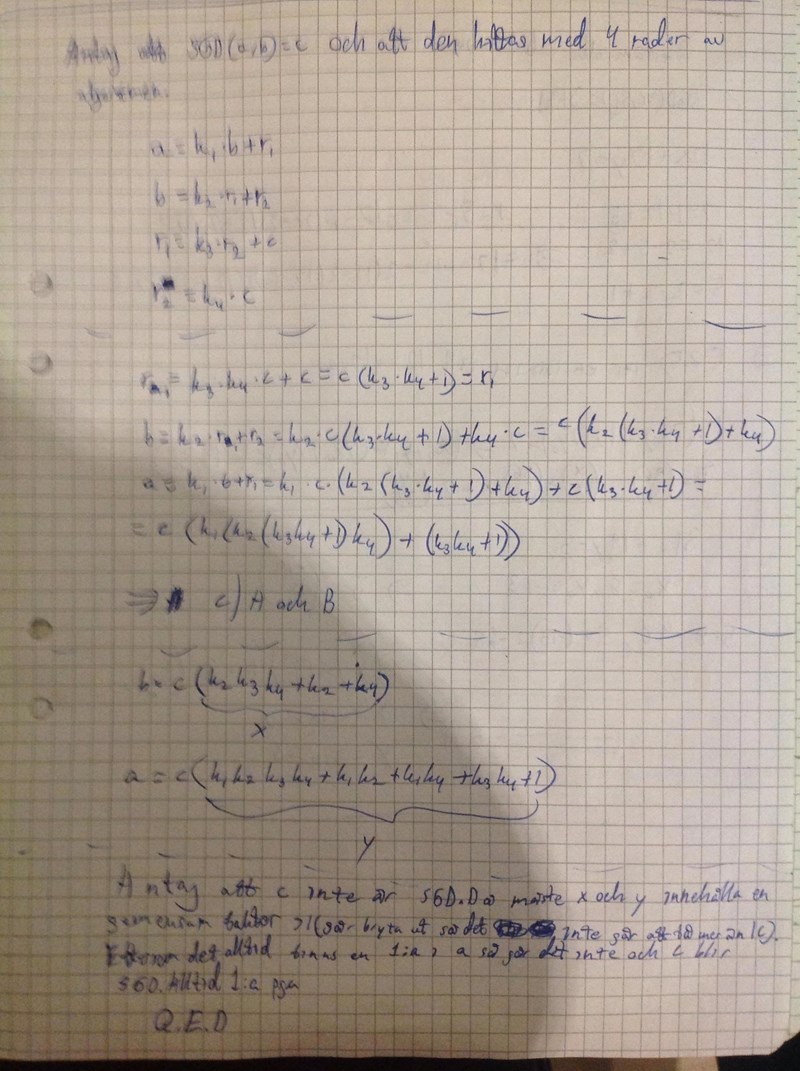 Antag att SGD(a,b)=c och att den hittas med 4 rader av
a = k₁·b+r₁
b = k₂·r₁+r₂
r₁ = k₃·r₂ + c
r₂ = k₄·c
r₁ = k₃·k₄·c + c = c(k₃·k₄+1) = r₁
b = k₂·r₁+r₂ = k₂·c(k₃·k₄+1)+k₄·c = c(k₂(k₃·k₄+1)+k₄)
a = k₁·b+r₁ = k₁·c·(k₂(k₃·k₄+1)+k₄)+c(k₃·k₄+1) =
= c (k₁(k₂(k₃k₄+1)k₄)+(k₃k₄+1))
⇒ c) A och B
b = c(k₂k₃k₄+k₂+k₄)
x
a = c(k₁k₂k₃k₄+k₁k₂+k₁k₄+k₃k₄+1)
y
Antag att c inte är SGD. Då måste x och y innehålla en
gemensam faktor >1 (går bryta ut så det inte går att få mer än 1c).
Eftersom det alltid finns en 1:a i a så går det inte och c blir
SGD. Alltid 1:a pga
Q.E.D